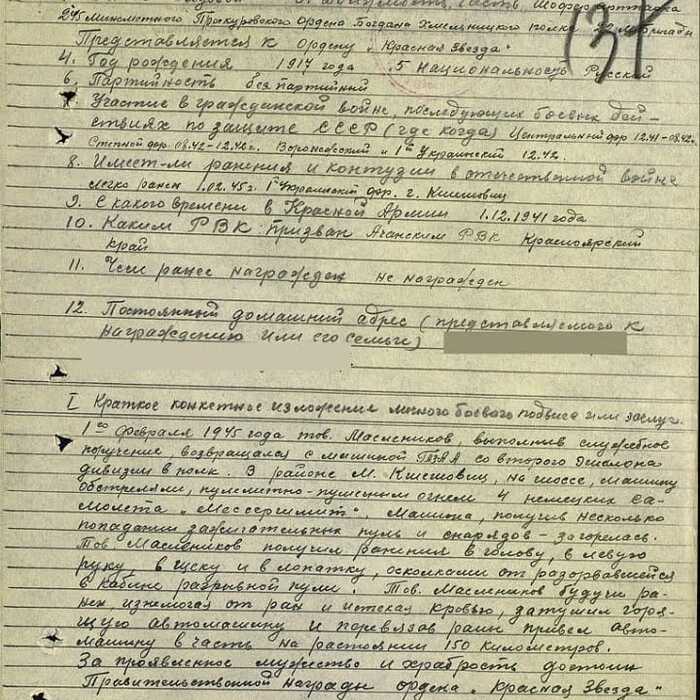 должность, часть, Шофер артпарка
245 минометного Проскуровского Ордена Богдана Хмельницкого полка бригады
Представляется к ордену „Красная Звезда"
4. Год рождения 1917 года 5 Национальность Русский
6. Партийность без партийный
7. Участие в гражданской войне, последующих боевых дей-
ствиях по защите СССР (где когда) Центральный фр 12.41-08.42
Степной фр. 08.42-12.42г. Воронежский и 1й Украинский 12.42.
8. Имеет-ли ранения и контузии в отечественной войне
легко ранен 1.02.45г. 1й Украинский фр. г.
9. С какого времени в Красной Армии 1.12.1941 года
10. Каким РВК призван Ачанским РВК Красноярский
край
11. Чем ранее награжден не награжден
12. Постоянный домашний адрес (представляемого к
награждению или его семьи)
I Краткое конкетное изложение личного боевого подвига или заслуг.
1го февраля 1945 года тов. Масленников, выполнив служебное
поручение, возвращался с машиной со второго эшалона
дивизии в полк. В районе М. Кишовиц, на шоссе, машину
обстреляли, пулеметно-пушечным огнем 4 немецких са-
молета „Мессершмит". Машина, получив несколько
попадании зажигательных пуль и снарядов - загорелась.
Тов. Масленников получил ранения в голову, в левую
руку, в щеку и в лопатку, осколками от разорвавшейся
в кабине разрывной пули. Тов. Масленников будучи ра-
нен изнемогая от ран и истекая кровью, затушил горя-
щую автомашину и перевязав раны привел авто-
машину в часть на растоянии 150 километров.
За проявленное мужество и храбрость достоин
Правительственной награды ордена „Красная Звезда"